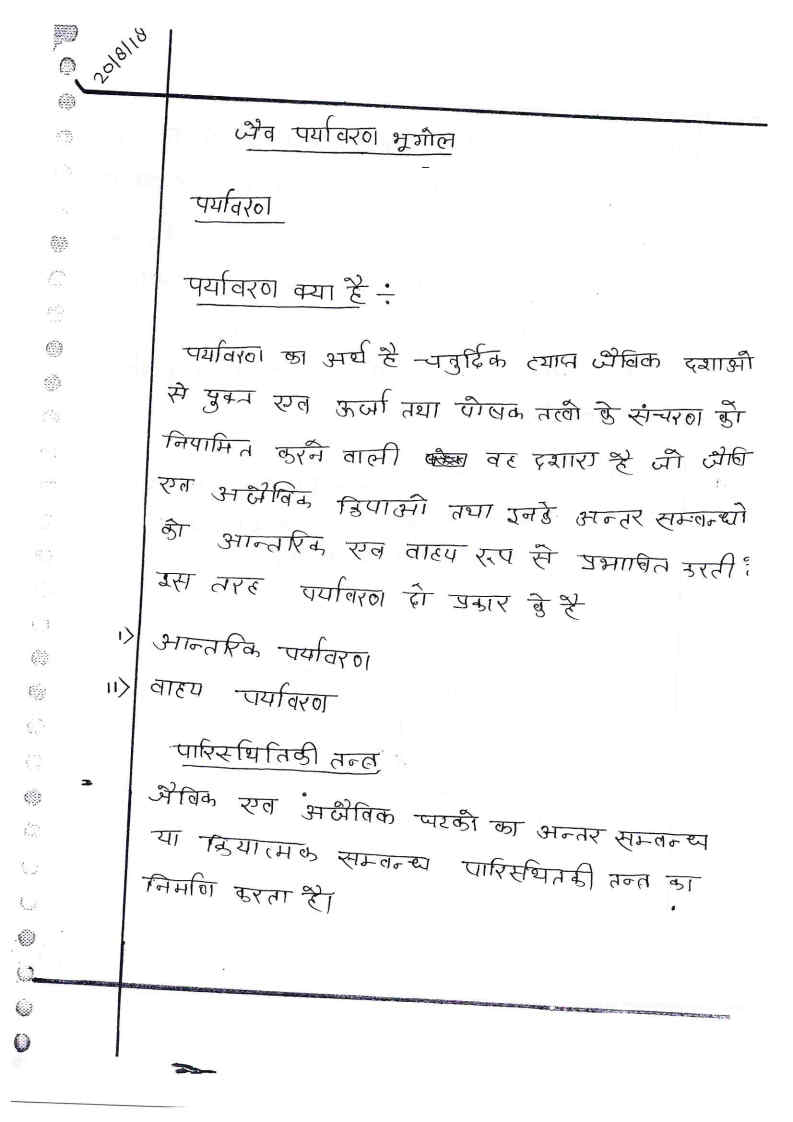 20/8/18
जैव पर्यावरण भूगोल
पर्यावरण
पर्यावरण क्या है ÷
पर्यावरण का अर्थ है चतुर्दिक व्याप्त जैविक दशाओ
से युक्त एवं ऊर्जा तथा पोषक तत्वो के संचरण को
नियामित करने वाली वह दशाए है जो जैवि
एव अजैविक क्रियाओ तथा इनके अन्तर सम्बन्धो
को आन्तरिक एव वाहय रूप से प्रभावित करती है
इस तरह पर्यावरण दो प्रकार के है
I> आन्तरिक पर्यावरण
II> वाहय पर्यावरण
पारिस्थितिकी तन्त्र
जैविक एव अजैविक घटको का अन्तर सम्बन्ध
या क्रियात्मक सम्बन्ध पारिस्थितकी तन्त का
निर्माण करता है।